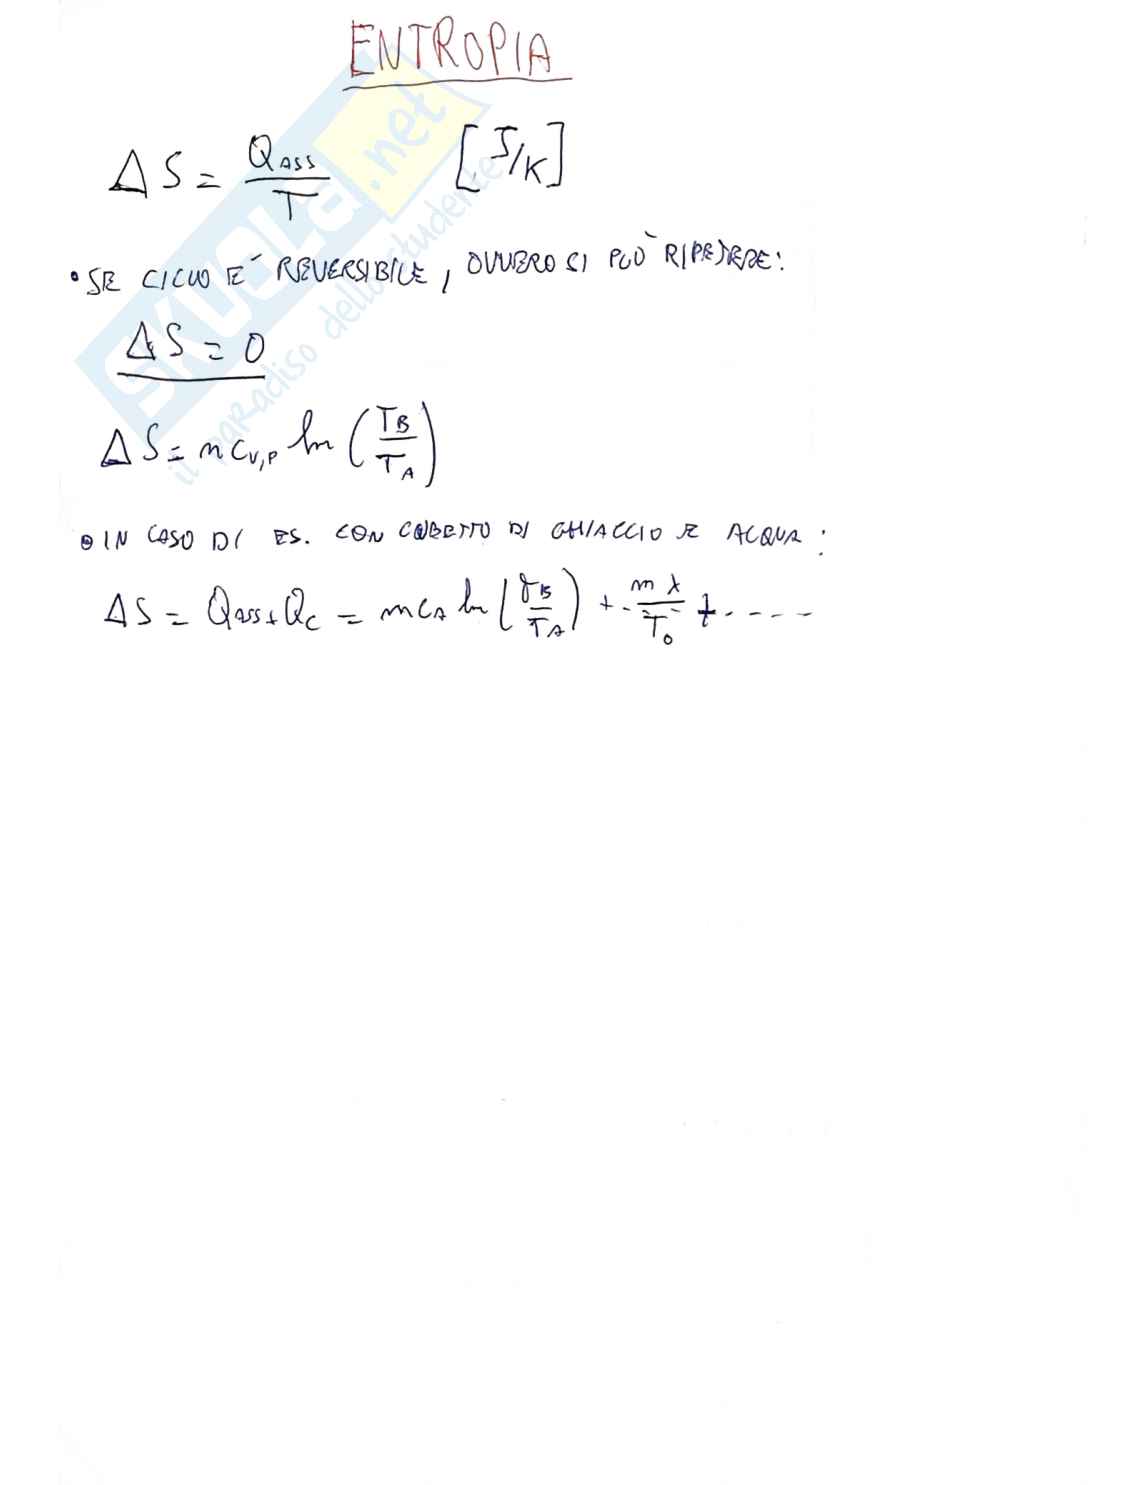 ENTROPIA
ΔS = Q_ASS / T [J/K]
• SE CICLO E' REVERSIBILE, OVVERO SI PUÒ RIPETERE:
ΔS = 0
ΔS = n c_V,P ln (T_B / T_A)
• IN CASO DI ES. CON CUBETTO DI GHIACCIO E ACQUA:
ΔS = Q_ASS + Q_C = m c_A ln (T_B / T_A) + m λ / T_0 + - - - -
SKUOLA.net
il paradiso dello studente